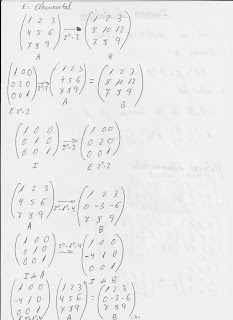 E = Elemental
(1 2 3; 4 5 6; 7 8 9) → 2º·2 (1 2 3; 8 10 12; 7 8 9)
A B
(1 0 0; 0 2 0; 0 0 1) (1 2 3; 4 5 6; 7 8 9) = (1 2 3; 8 10 12; 7 8 9)
E 2º·2 A B
(1 0 0; 0 1 0; 0 0 1) → 2º·2 (1 0 0; 0 2 0; 0 0 1)
I E 2º·2
(1 2 3; 4 5 6; 7 8 9) → 2º-1º·4 (1 2 3; 0 -3 -6; 7 8 9)
A B
(1 0 0; 0 1 0; 0 0 1) → 2º-1º·4 (1 0 0; -4 1 0; 0 0 1)
I
(1 0 0; -4 1 0; 0 0 1) (1 2 3; 4 5 6; 7 8 9) = (1 2 3; 0 -3 -6; 7 8 9)
E 2º-1º·4 A B